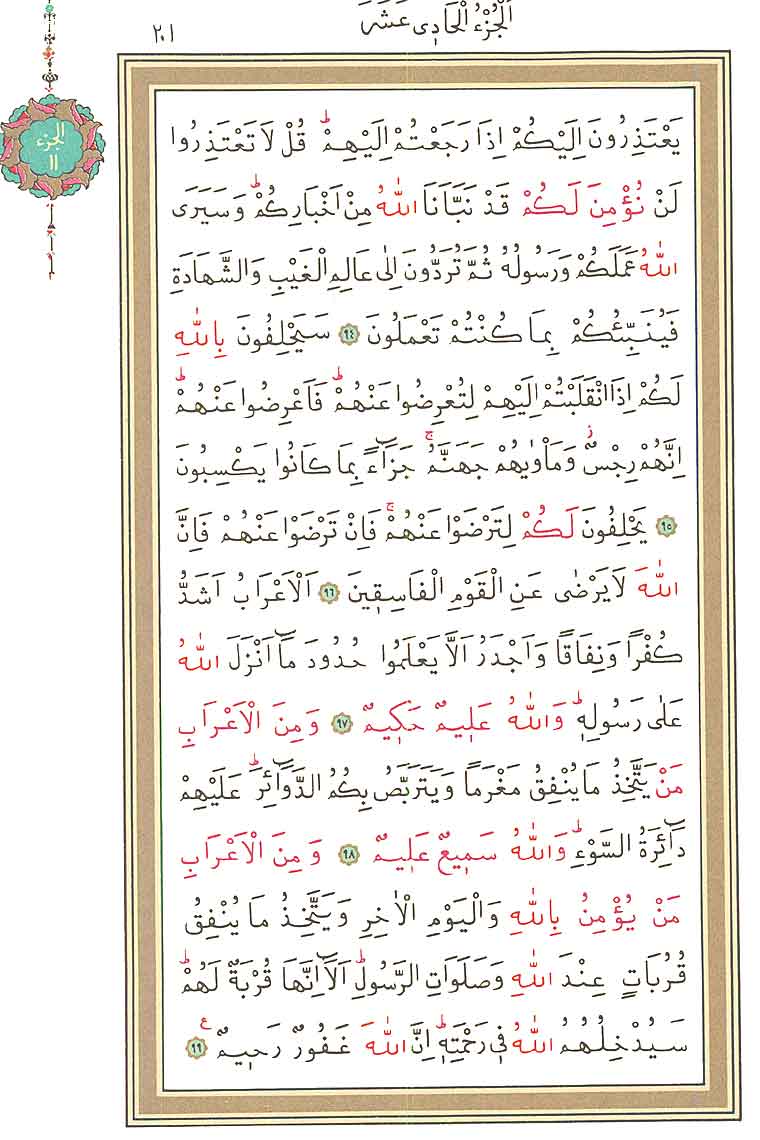 اَلْجُزْءُ الْحَادِى عَشَرَ
٢٠١
الجزء
١١
يَعْتَذِرُونَ اِلَيْكُمْ اِذَا رَجَعْتُمْ اِلَيْهِمْۜ قُلْ لَا تَعْتَذِرُوا
لَنْ نُؤْمِنَ لَكُمْ قَدْ نَبَّاَنَا اللّٰهُ مِنْ اَخْبَارِكُمْۜ وَسَيَرَى
اللّٰهُ عَمَلَكُمْ وَرَسُولُهُ ثُمَّ تُرَدُّونَ اِلٰى عَالِمِ الْغَيْبِ وَالشَّهَادَةِ
فَيُنَبِّئُكُمْ بِمَا كُنْتُمْ تَعْمَلُونَ ﴿٩٤﴾ سَيَحْلِفُونَ بِاللّٰهِ
لَكُمْ اِذَا انْقَلَبْتُمْ اِلَيْهِمْ لِتُعْرِضُوا عَنْهُمْۜ فَاَعْرِضُوا عَنْهُمْۜ
اِنَّهُمْ رِجْسٌۘ وَمَاْوٰيهُمْ جَهَنَّمُۚ جَزَٓاءً بِمَا كَانُوا يَكْسِبُونَ
﴿٩٥﴾ يَحْلِفُونَ لَكُمْ لِتَرْضَوْا عَنْهُمْۚ فَاِنْ تَرْضَوْا عَنْهُمْ فَاِنَّ
اللّٰهَ لَا يَرْضٰى عَنِ الْقَوْمِ الْفَاسِقٖينَ ﴿٩٦﴾ اَلْاَعْرَابُ اَشَدُّ
كُفْرًا وَنِفَاقًا وَاَجْدَرُ اَلَّا يَعْلَمُوا حُدُودَ مَٓا اَنْزَلَ اللّٰهُ
عَلٰى رَسُولِهٖۜ وَاللّٰهُ عَلٖيمٌ حَكٖيمٌ ﴿٩٧﴾ وَمِنَ الْاَعْرَابِ
مَنْ يَتَّخِذُ مَا يُنْفِقُ مَغْرَمًا وَيَتَرَبَّصُ بِكُمُ الدَّوَٓائِرَۜ عَلَيْهِمْ
دَٓائِرَةُ السَّوْءِۜ وَاللّٰهُ سَمٖيعٌ عَلٖيمٌ ﴿٩٨﴾ وَمِنَ الْاَعْرَابِ
مَنْ يُؤْمِنُ بِاللّٰهِ وَالْيَوْمِ الْاٰخِرِ وَيَتَّخِذُ مَا يُنْفِقُ
قُرُبَاتٍ عِنْدَ اللّٰهِ وَصَلَوَاتِ الرَّسُولِۜ اَلَٓا اِنَّهَا قُرْبَةٌ لَهُمْۜ
سَيُدْخِلُهُمُ اللّٰهُ فٖى رَحْمَتِهٖۜ اِنَّ اللّٰهَ غَفُورٌ رَحٖيمٌ ﴿٩٩﴾ ع